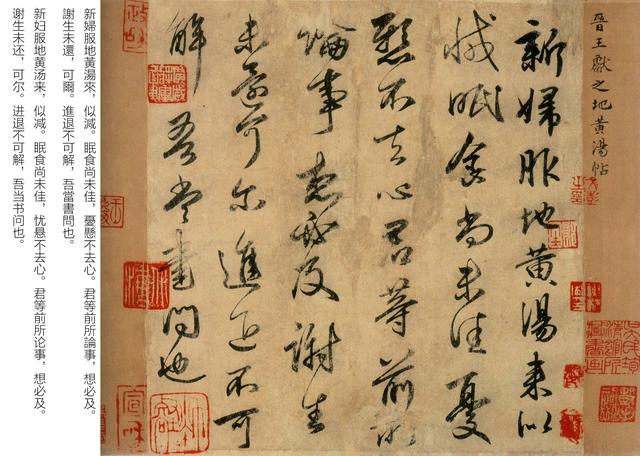 晉王獻之地黃湯帖
新婦服地黃湯來似
減眠食尚未佳憂
懸不去心君等前所
論事想必及謝生
未還可爾進退不可
解吾當書問也
新婦服地黃湯來，似減。眠食尚未佳，憂懸不去心。君等前所論事，想必及。
謝生未還，可爾。進退不可解，吾當書問也。
新妇服地黄汤来，似减。眠食尚未佳，忧悬不去心。君等前所论事，想必及。
谢生未还，可尔。进退不可解，吾当书问也。